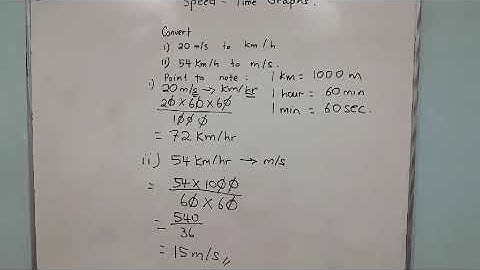 Speed - Time Graphs.
Convert
i) 20 m/s to km/h
ii) 54 km/h to m/s.
Point to note: 1 km = 1000 m
i) 20 m/s → km/hr 1 hour = 60 min
20 x 60 x 60 1 min = 60 sec.
1000
= 72 km/hr
ii) 54 km/hr → m/s
= 54 x 1000
60 x 60
= 540
36
= 15 m/s,,